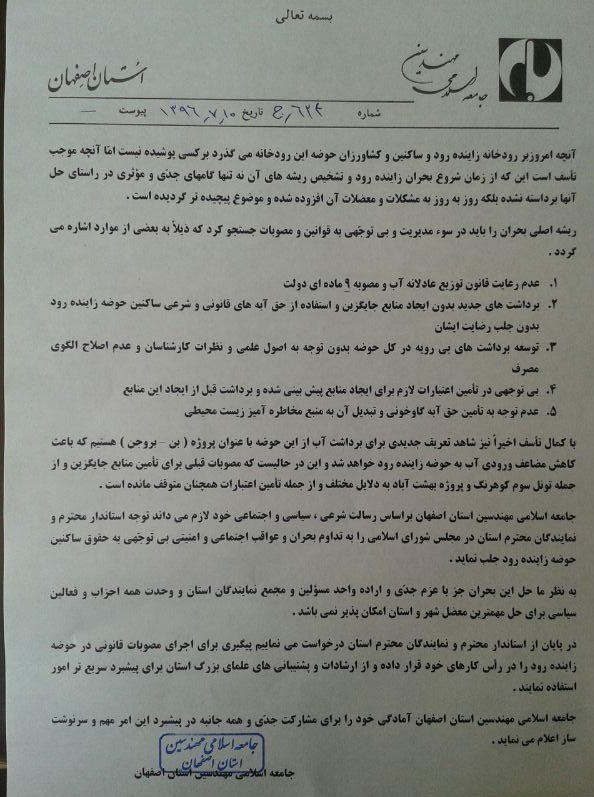 بسمه تعالی
جامعه اسلامی مهندسین
استان اصفهان
شماره ۶۲۴ر ج تاریخ ۱۳۹۶٫۷٫۱۰ پیوست —
آنچه امروزبر رودخانه زاینده رود و ساکنین و کشاورزان حوضه این رودخانه می گذرد برکسی پوشیده نیست امّا آنچه موجب
تأسف است این که از زمان شروع بحران زاینده رود و تشخیص ریشه های آن نه تنها گامهای جدّی و مؤثری در راستای حل
آنها برداشته نشده بلکه روز به روز به مشکلات و معضلات آن افزوده شده و موضوع پیچیده تر گردیده است .
ریشه اصلی بحران را باید در سوء مدیریت و بی توجّهی به قوانین و مصوبات جستجو کرد که ذیلاً به بعضی از موارد اشاره می
گردد .
۱. عدم رعایت قانون توزیع عادلانه آب و مصوبه ۹ ماده ای دولت
۲. برداشت های جدید بدون ایجاد منابع جایگزین و استفاده از حق آبه های قانونی و شرعی ساکنین حوضه زاینده رود
بدون جلب رضایت ایشان
۳. توسعه برداشت های بی رویه در کل حوضه بدون توجه به اصول علمی و نظرات کارشناسان و عدم اصلاح الگوی
مصرف
۴. بی توجهی در تأمین اعتبارات لازم برای ایجاد منابع پیش بینی شده و برداشت قبل از ایجاد این منابع
۵. عدم توجه به تأمین حق آبه گاوخونی و تبدیل آن به منبع مخاطره آمیز زیست محیطی
با کمال تأسف اخیراً نیز شاهد تعریف جدیدی برای برداشت آب از این حوضه با عنوان پروژه ( بن – بروجن ) هستیم که باعث
کاهش مضاعف ورودی آب به حوضه زاینده رود خواهد شد و این در حالیست که مصوبات قبلی برای تأمین منابع جایگزین و از
جمله تونل سوم کوهرنگ و پروژه بهشت آباد به دلایل مختلف و از جمله تأمین اعتبارات همچنان متوقف مانده است .
جامعه اسلامی مهندسین استان اصفهان براساس رسالت شرعی ، سیاسی و اجتماعی خود لازم می داند توجه استاندار محترم و
نمایندگان محترم استان در مجلس شورای اسلامی را به تداوم بحران و عواقب اجتماعی و امنیتی بی توجّهی به حقوق ساکنین
حوضه زاینده رود جلب نماید .
به نظر ما حل این بحران جز با عزم جدّی و اراده واحد مسؤلین و مجمع نمایندگان استان و وحدت همه احزاب و فعالین
سیاسی برای حل مهمترین معضل شهر و استان امکان پذیر نمی باشد .
در پایان از استاندار محترم و نمایندگان محترم استان درخواست می نماییم پیگیری برای اجرای مصوبات قانونی در حوضه
زاینده رود را در رأس کارهای خود قرار داده و از ارشادات و پشتیبانی های علمای بزرگ استان برای پیشبرد سریع تر امور
استفاده نمایند .
جامعه اسلامی مهندسین استان اصفهان آمادگی خود را برای مشارکت جدّی و همه جانبه در پیشبرد این امر مهم و سرنوشت
ساز اعلام می نماید .
جامعه اسلامی مهندسین
استان اصفهان
جامعه اسلامی مهندسین استان اصفهان